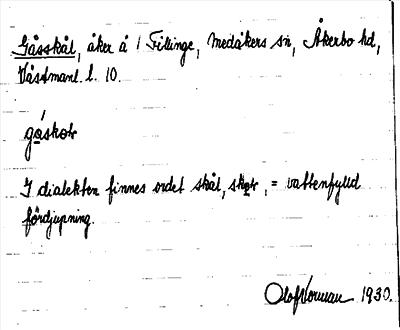 Gåsskål, åker å 1 Fillinge, Medåkers sn, Åkerbo hd,
Västmanl. l. 10.
gåskoł
I dialekten finnes ordet skål, skoł, = vattenfylld
fördjupning.
Olof Norman 1930.